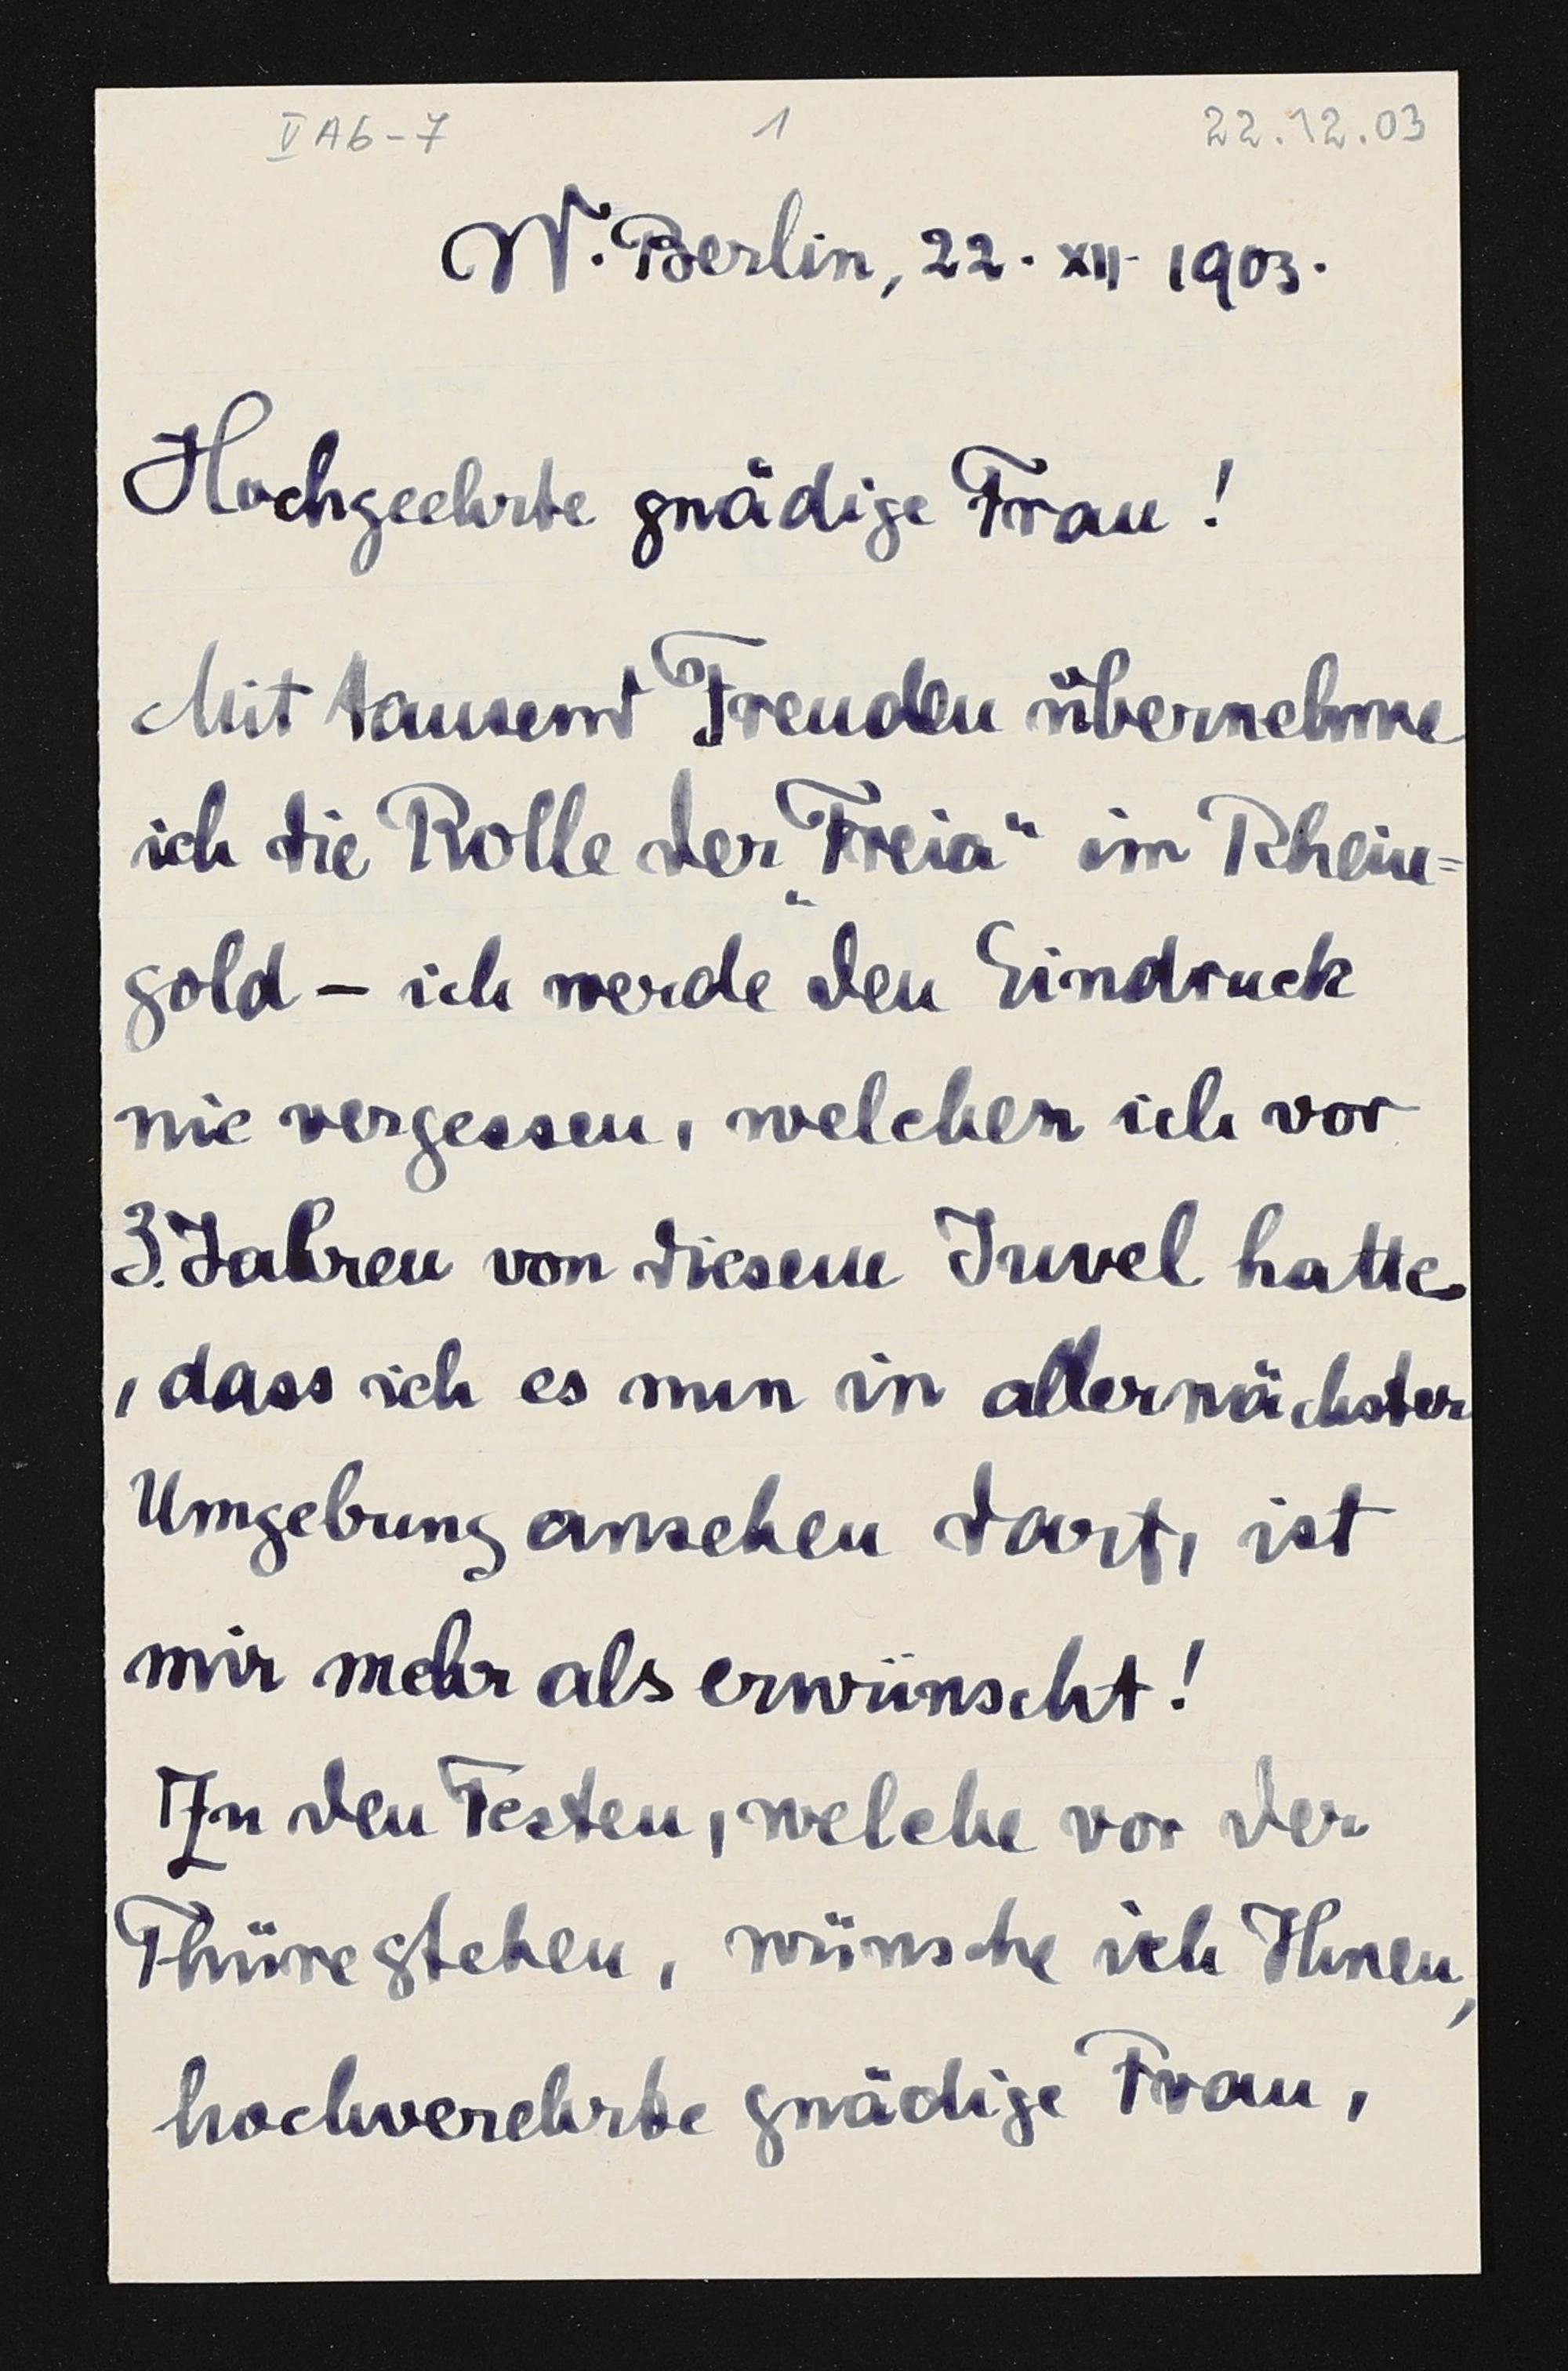 V A 6 - 7 1 22.12.03
W. Berlin, 22. XII. 1903.
Hochgeehrte gnädige Frau!
Mit tausend Freuden übernehme
ich die Rolle der „Freia“ im Rhein=
gold – ich werde den Eindruck
nie vergessen, welchen ich vor
3. Jahren von diesem Juvel hatte
, dass ich es nun in allernächster
Umgebung ansehen darf, ist
mir mehr als erwünscht!
Zu den Festen, welche vor der
Thüre stehen, wünsche ich Ihnen,
hochverehrte gnädige Frau,